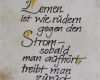 Lernen
ist wie rudern
gegen den
Strom-
sobald
man aufhört,
treibt man
zurück